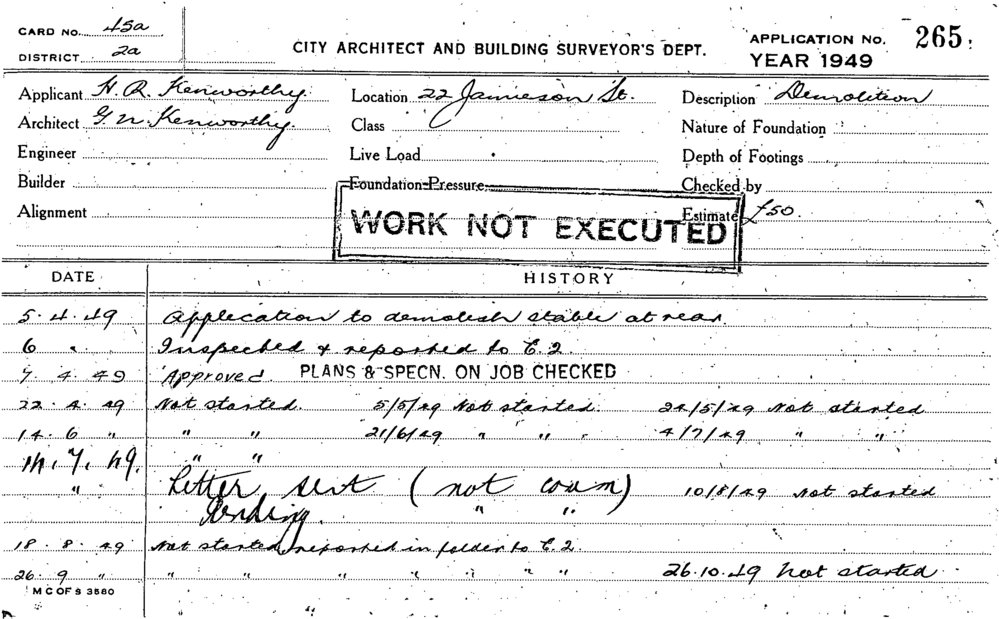 CARD NO. 45a
DISTRICT 2a
CITY ARCHITECT AND BUILDING SURVEYOR'S DEPT.
APPLICATION NO. 265.
YEAR 1949
Applicant H. R. Kenworthy. Location 22 Jamieson St. Description Demolition
Architect G. N. Kenworthy. Class Nature of Foundation
Engineer Live Load Depth of Footings
Builder Foundation Pressure Checked by
Alignment Estimate £50.
WORK NOT EXECUTED
DATE HISTORY
5.4.49 Application to demolish stable at rear.
6 " Inspected & reported to C.2.
7.4.49 Approved. PLANS & SPECN. ON JOB CHECKED
22.4.49 Not started. 5/5/49 Not started. 24/5/49 Not started
14.6 " " " 21/6/49 " " 4/7/49 " "
14.7.49. " "
" Letter sent (not comm) 10/8/49 Not started
Pending. " "
18.8.49 Not started, reported in folder to C.2.
26.9 " " " " " " " " 26.10.49 Not started
M C OF S 3580